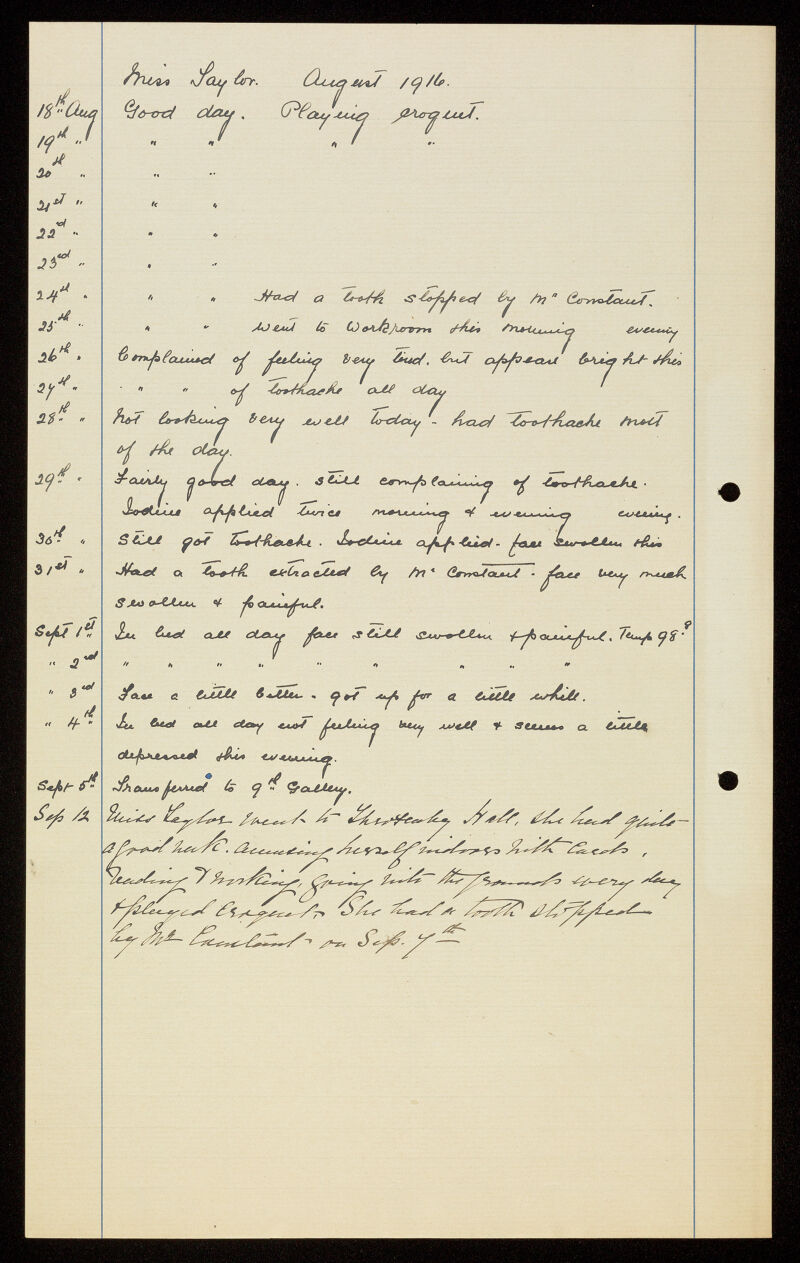 Miss Taylor. August 1916.
18th Aug Good day. Playing croquet.
19th " " " " "
20th " " "
21st " " "
22nd " " "
23rd " " "
24th " " " Had a tooth stopped by Mr Constant.
25th " " " went to Workroom this morning evening
26th " Complained of feeling very tired. but appears bright this
27th " " " of toothache all day
28th " Not looking very well today - had toothache most
of the day.
29th " Fairly good day. still complaining of toothache.
Iodine applied twice morning & evening evening.
30th " Still got toothache. Iodine applied - face swollen this
31st " Had a tooth extracted by Mr Constant - face very much
swollen & painful.
Sept 1st In bed all day face still swollen & painful. Temp 98.8
" 2nd " " " " " " " " "
" 3rd Face a little better - got up for a little while.
" 4th In bed all day not feeling very well & seems a little
depressed this evening.
Sept 5th Transferred to 9th Gallery.
Sep 12 Miss Taylor went to Throxenby Hall, she had quite
a good week. amusing herself indoors with Cards,
Reading & Working, going into the grounds every day
& played Croquet. She had a tooth stopped
by Mr Constant on Sep. 7th